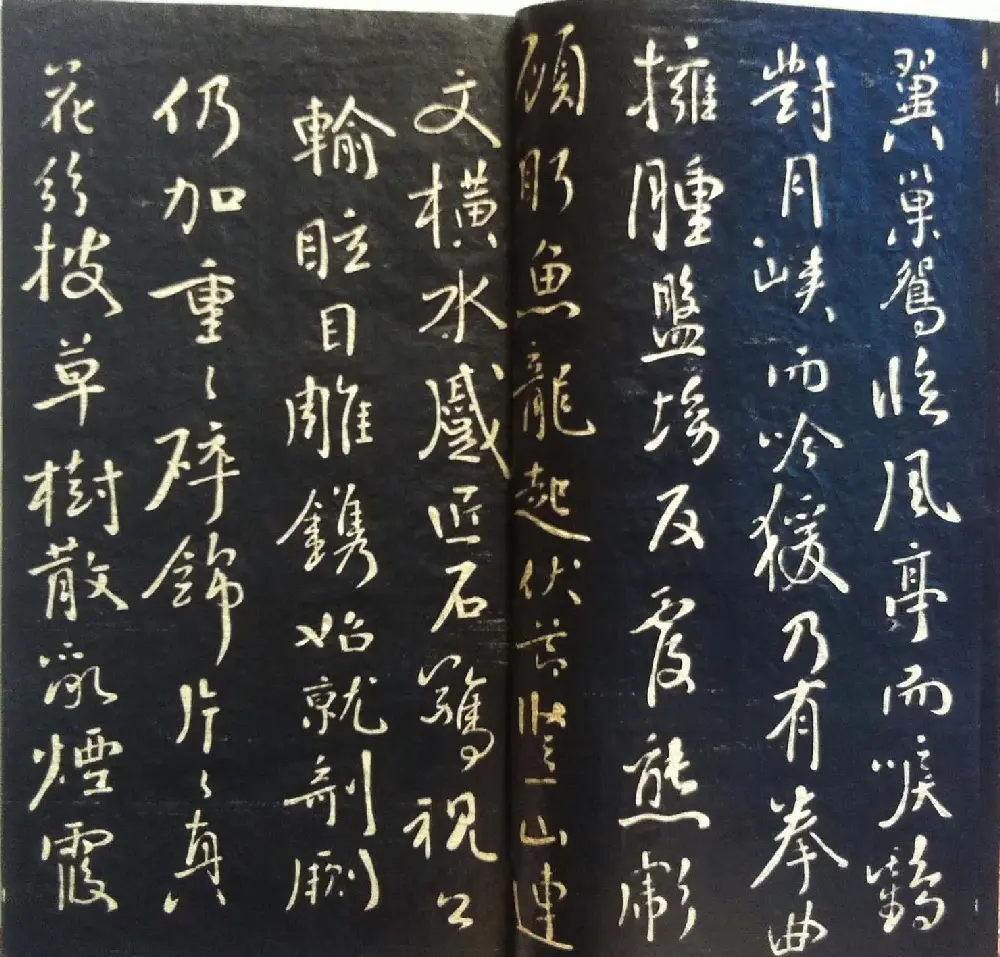 翼巢鴛臨風亭而唳鶴
對月峽而吟猨乃有拳曲
擁腫盤坳反覆熊彪
顧盻魚龍起伏節豎山連
文橫水蹙匠石驚視公
輸眩目雕鐫始就剞劂
仍加重〻碎錦片〻真
花紛披草樹散亂煙霞